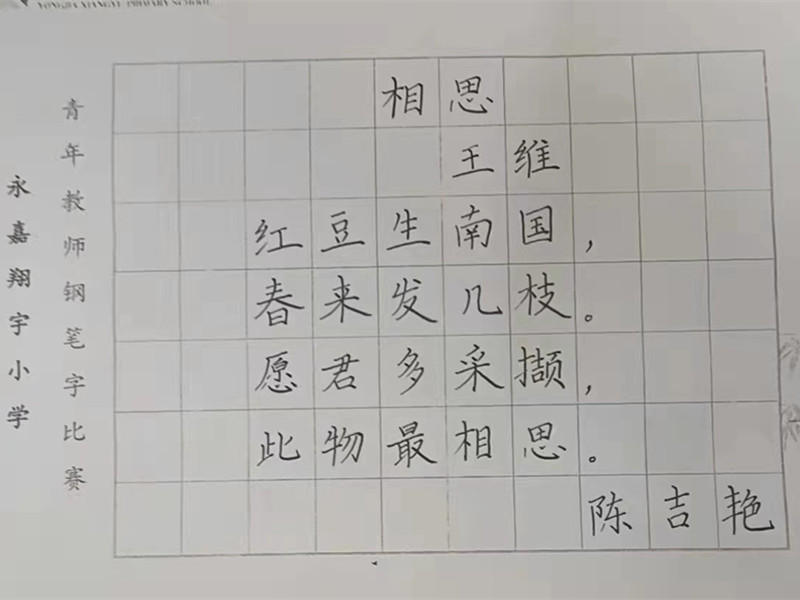 YONGJIA XIANGYU PRIMARY SCHOOL
永嘉翔宇小学
青年教师钢笔字比赛
相思
王维
红豆生南国，
春来发几枝。
愿君多采撷，
此物最相思。
陈吉艳